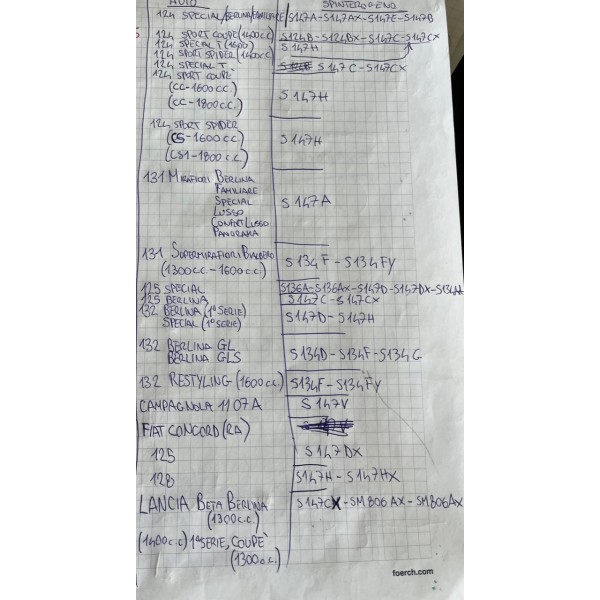 AUTO SPINTEROGENO
124 SPECIAL/BERLINA/FAMILIARE/ S147A-S147AX-S147E-S147B
124 SPORT COUPE (1400CC) S124B-S124BX-S147C-S147CX
124 SPECIAL T (1600) S147H
124 SPORT SPIDER (1400CC)
124 SPECIAL T. S147C-S147CX
124 SPORT COUPE'
(CC-1600CC) S147H
(CC-1800C.C.)
124 SPORT SPIDER
(CS-1600CC) S147H
(CS1-1800C.C.)
131 MIRAFIORI BERLINA
FAMILIARE
SPECIAL S147A
LUSSO
CONFORT LUSSO
PANORAMA
131 SUPERMIRAFIORI BIALBERO S134F-S134FY
(1300C.C.-1600C.C.)
125 SPECIAL S136A-S136AX-S147D-S147DX-S134H
125 BERLINA S147C-S147CX
132 BERLINA (1ªSERIE) S147D-S147H
SPECIAL (1ªSERIE)
132 BERLINA GL S134D-S134F-S134G
BERLINA GLS
132 RESTYLING (1600CC.) S134F-S134FY
CAMPAGNOLA 1107A S147V
FIAT CONCORD (RA)
125 S147DX
128 S147H-S147HX
LANCIA BETA BERLINA S147CX-SM806AX-SM806AX
(1300C.C.)
(1400C.C) 1ªSERIE, COUPE'
(1300C.C.)
foerch.com